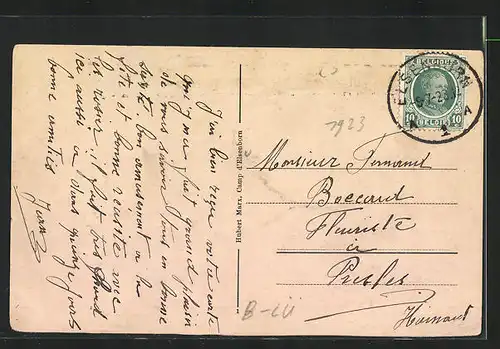 J'ai bien reçu votre carte
qui m'a fait grand plaisir
de vous savoir tous en bonne
santé bon amusement à la
fête et bonne réussite avec
les rosiers, il fait très chaud
ici aussi à dans quinze jours
bonne amitiés
Hubert Marx, Camp d'Elsenborn
BELGIQUE
10 BELGIE 10
ELSENBORN
1 A
1923
Monsieur Fernand
Boccard
Fleuriste
à
Presles
Hainaut
B-LII